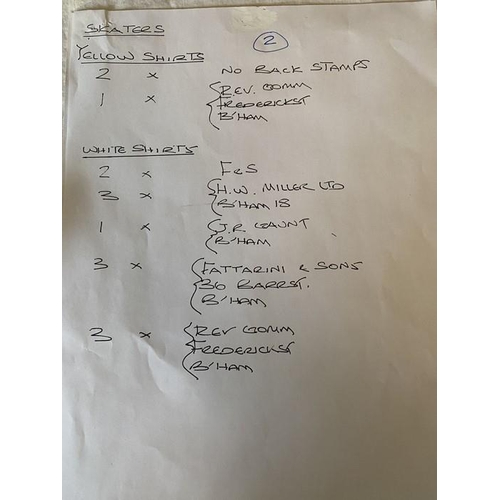 SKATERS
2
YELLOW SHIRTS
2 x NO BACK STAMPS
1 x REV. GOMM
FREDERICKST
B'HAM
WHITE SHIRTS
2 x F&S
3 x H.W. MILLER LTD
B'HAM 18
1 x J.R. GAUNT
B'HAM
3 x FATTARINI & SONS
36 BARRST.
B'HAM
3 x REV GOMM
FREDERICKST
B'HAM